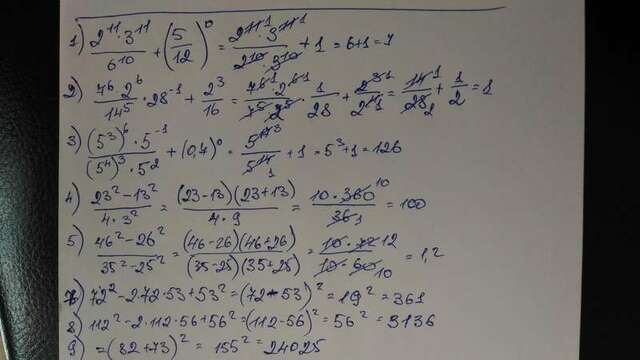 1) (2¹¹·3¹¹)/6¹⁰ + (5/12)⁰ = (2¹¹ ¹·3¹¹ ¹)/(2¹⁰·3¹⁰) + 1 = 6+1 = 7
2) (7⁶·2⁶)/14⁵ · 28⁻¹ + 2³/16 = (7⁶ ¹·2⁶ ¹)/(7⁵·2⁵) · 1/28 + 2³ ¹/2⁴ ¹ = 14 ¹/28 ₂ + 1/2 = 1
3) ((5³)⁶·5⁻¹)/((5⁴)³·5²) + (0,7)⁰ = 5¹⁷ ³/5¹⁴ ₁ + 1 = 5³+1 = 126
4) (23²-13²)/(4·3²) = ((23-13)(23+13))/(4·9) = (10·360 ¹⁰)/36 ₁ = 100
5) (46²-26²)/(35²-25²) = ((46-26)(46+26))/((35-25)(35+25)) = (10·72 12)/(10·60 10) = 1,2
7) 72²-2·72·53+53² = (72-53)² = 19² = 361
8) 112²-2·112·56+56² = (112-56)² = 56² = 3136
9) = (82+73)² = 155² = 24025